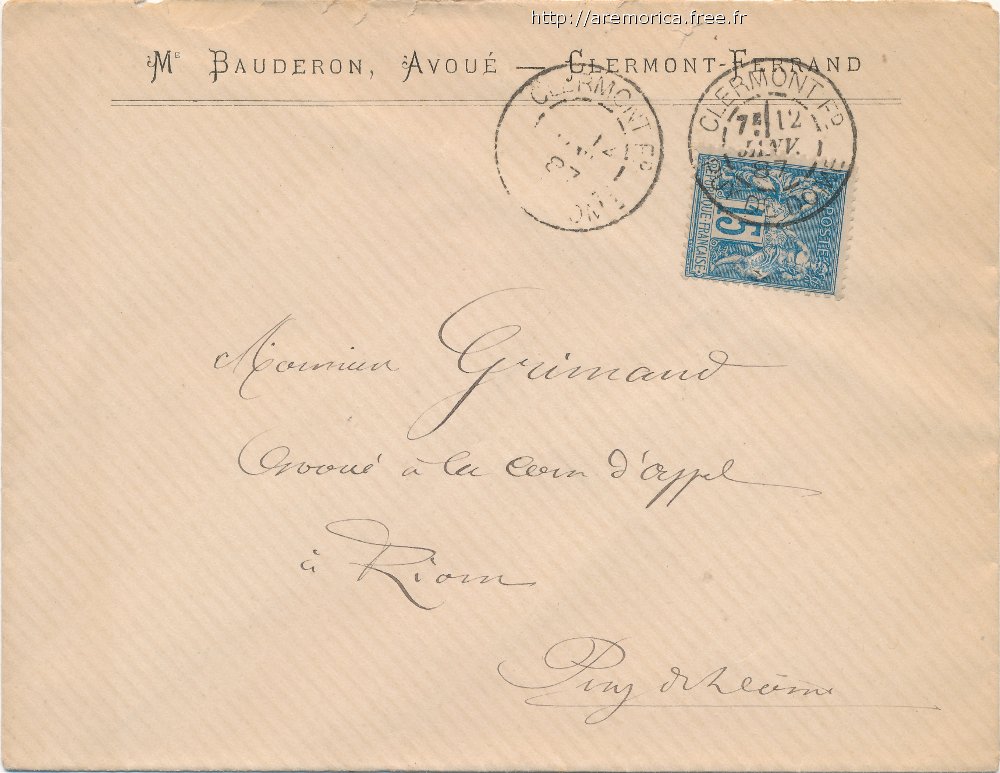 http://aremorica.free.fr
Mᴱ BAUDERON, AVOUÉ — CLERMONT-FERRAND
CLERMONT Fᴰ
12
87
CLERMONT Fᴰ
7E 12
JANV.
87
PUY-DE-DÔME
POSTES
15
REPUBLIQUE FRANÇAISE
Monsieur Grimaud
Avoué à la cour d'appel
à Riom
Puy de Dôme